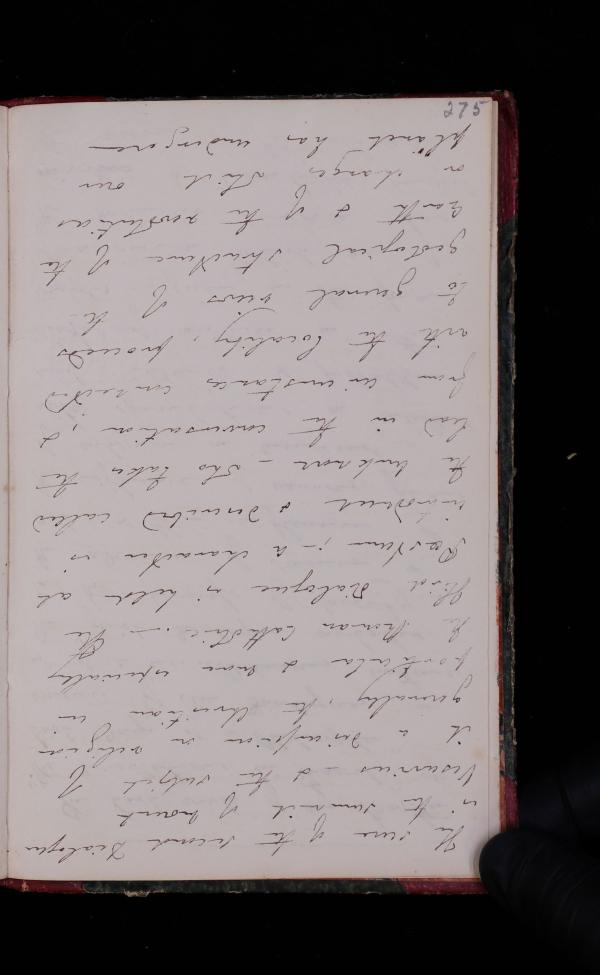 275
The scene of the second Dialogue
is the summit of Mount
Vesuvius - & the subject of
it a discussion on religion
generally, the Christian in
particular & more especially
the Roman Catholic. - The
third Dialogue is held at
Paestum; - a character is
introduced & described called
the Unknown - who takes the
lead in the conversation, &
from circumstances connected
with the locality, proceeds
to general views of the
geological structure of the
Earth & of the revolutions
or changes which our
planet has undergone